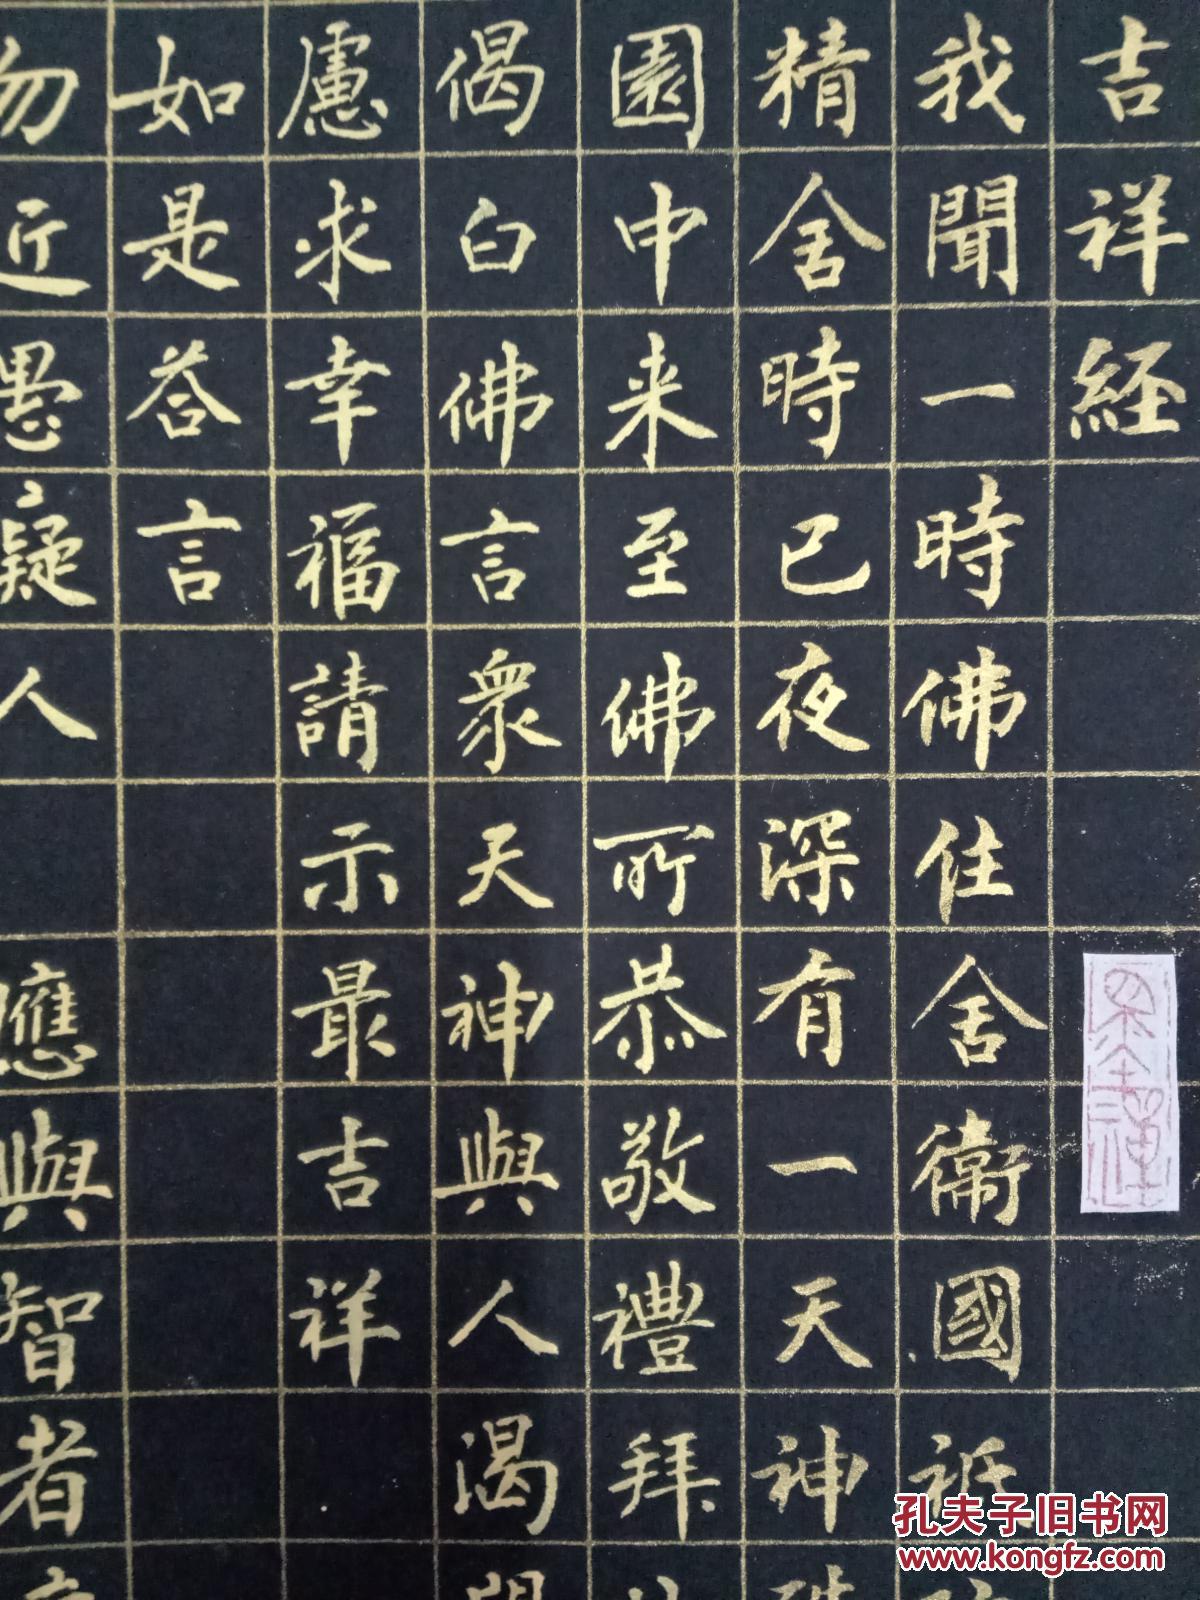 吉祥経
我聞一時佛住舍衛國祇
精舍時已夜深有一天神殊
園中来至佛所恭敬禮拜
偈白佛言衆天神與人渴望
慮求幸福請示最吉祥
如是荅言
勿近愚癡人 應與智者
孔夫子旧书网
www.kongfz.com